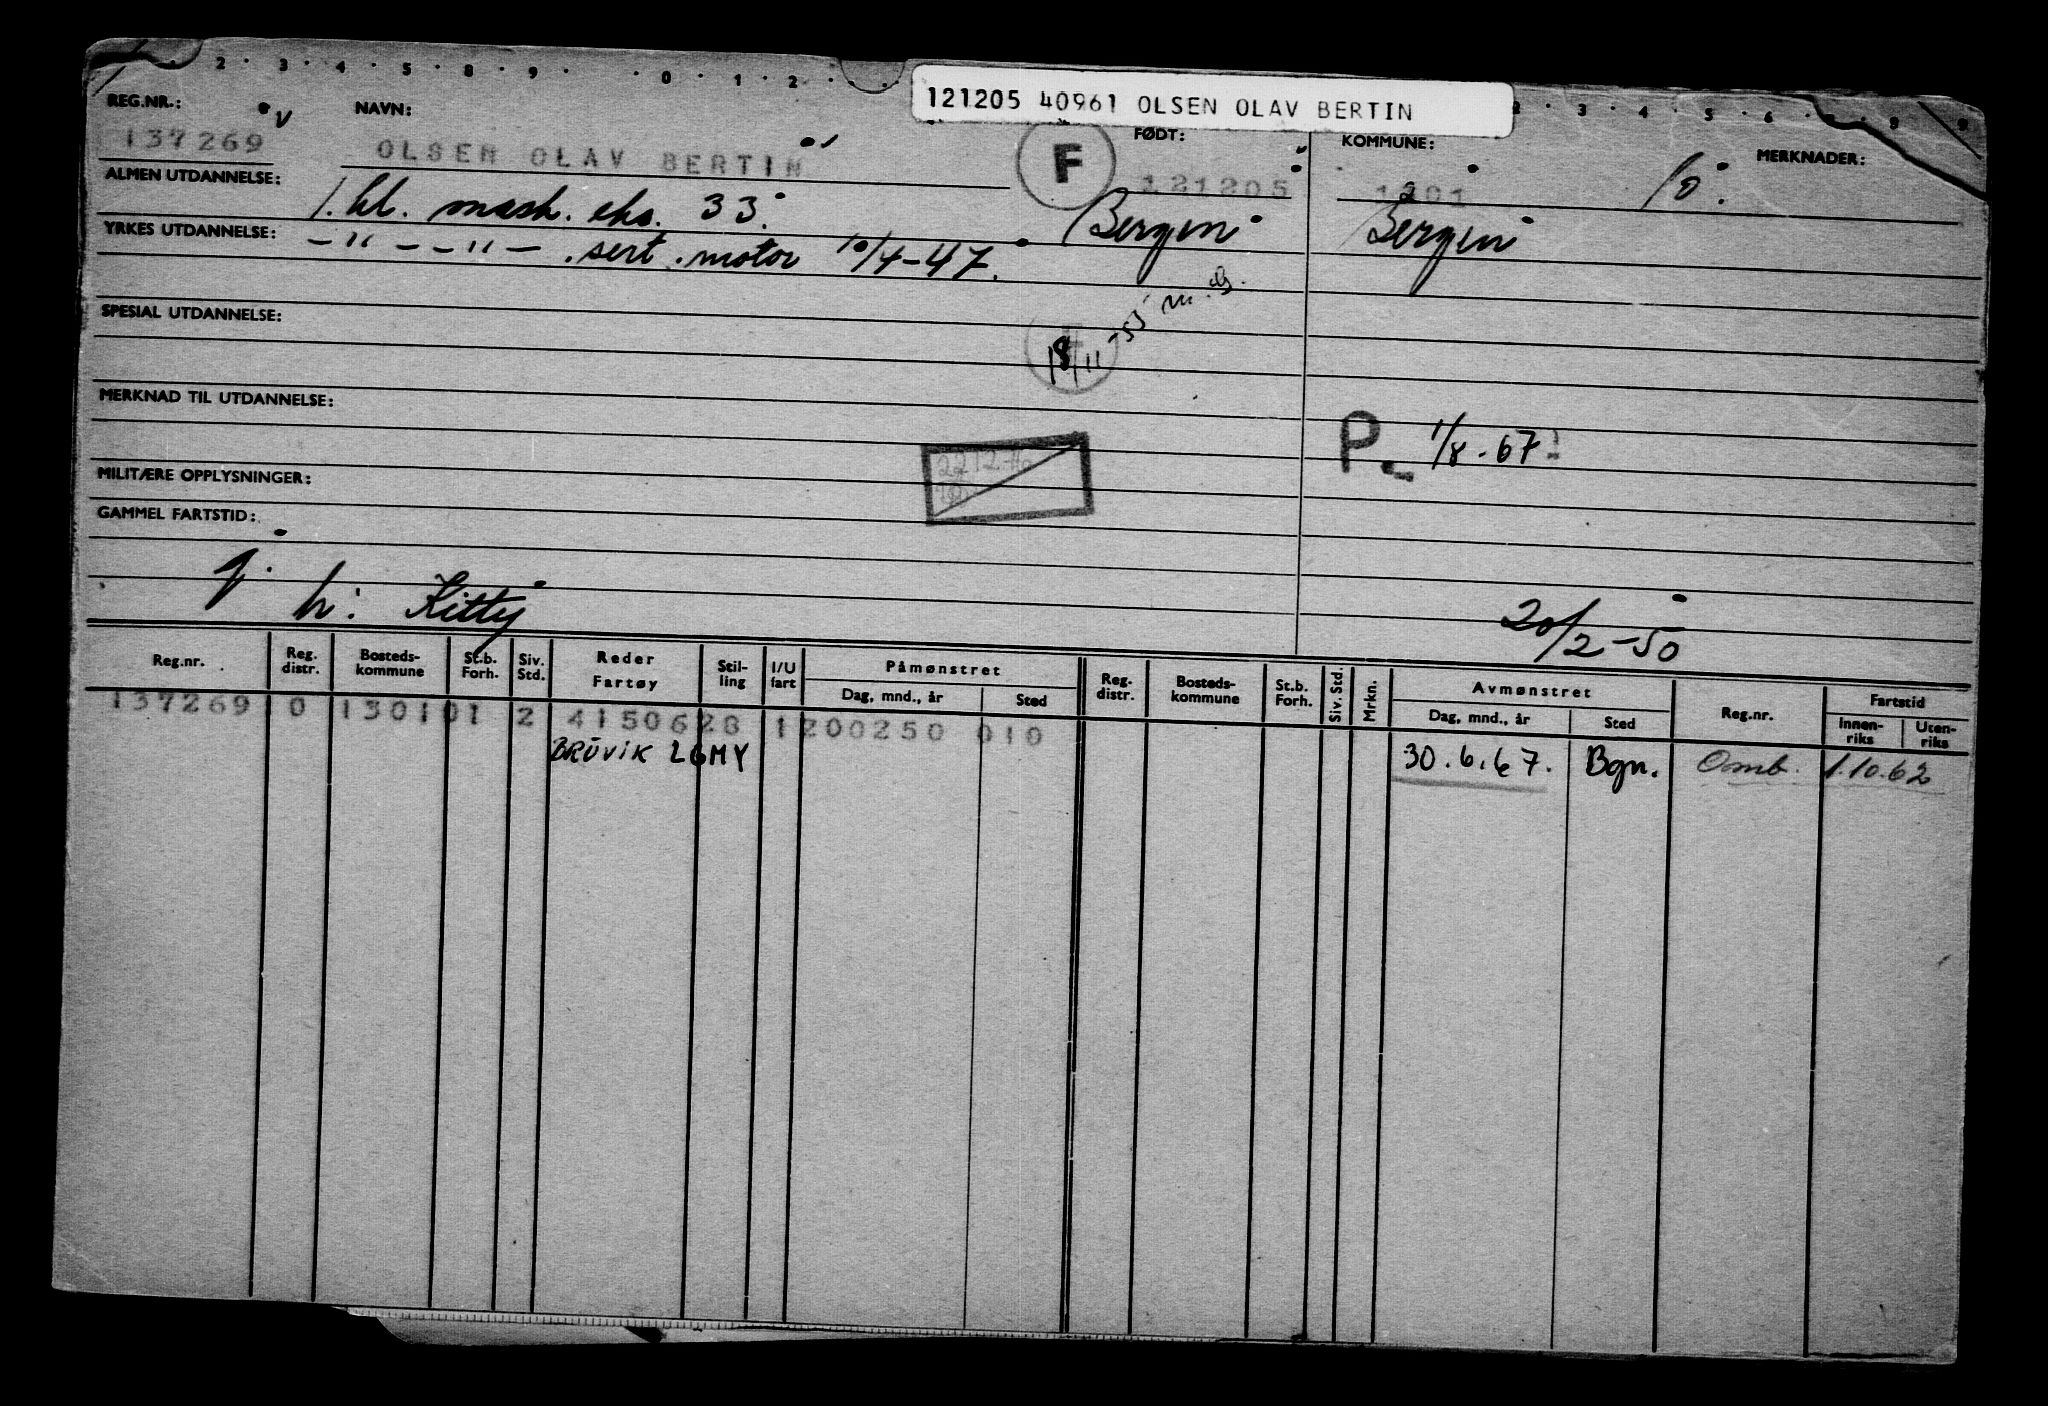 2 · 3 · 4 · 5 · 8 · 9 · · 0 · 1 · 2 ·
121205 40961 OLSEN OLAV BERTIN
REG.NR.: NAVN: FØDT: KOMMUNE: MERKNADER:
137269 OLSEN OLAV BERTIN F 121205 1201
ALMEN UTDANNELSE: 1. kl. mask. eks. 33. Bergen Bergen
YRKES UTDANNELSE: — " — — " — . sert. motor 10/4-47.
18/11-55
SPESIAL UTDANNELSE:
MERKNAD TIL UTDANNELSE:
P 1/8.67
MILITÆRE OPPLYSNINGER:
GAMMEL FARTSTID:
h: Kitty 20/2-50
Reg.nr. Reg. distr. Bosteds-kommune St.b. Forh. Siv. Std. Reder Fartøy Stil-ling I/U fart Påmønstret Dag, mnd., år Sted Reg. distr. Bosteds-kommune St.b. Forh. Siv. Std. Mrkn. Avmønstret Dag, mnd., år Sted Reg.nr. Fartstid Innen-riks Uten-riks
137269 0 130101 2 4150628 1200250 010
BRUVIK LGMY 30.6.67. Bgn. Omb. 1.10.62